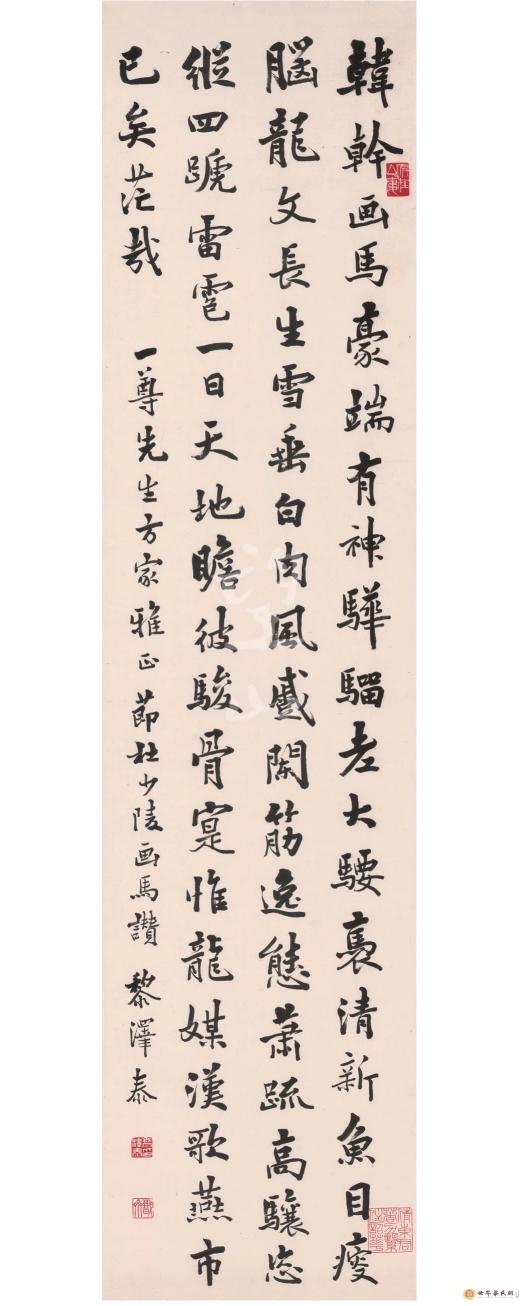 韓幹画馬豪端有神驊騮老大騕褭清新魚目瘦
腦龍文長生雪垂白肉風蹙闌筋逸態蕭疏高驤恣
縱四蹏雷雹一日天地瞻彼駿骨寔惟龍媒漢歌燕市
已矣茫哉
一尊先生方家雅正 節杜少陵画馬讚 黎澤泰